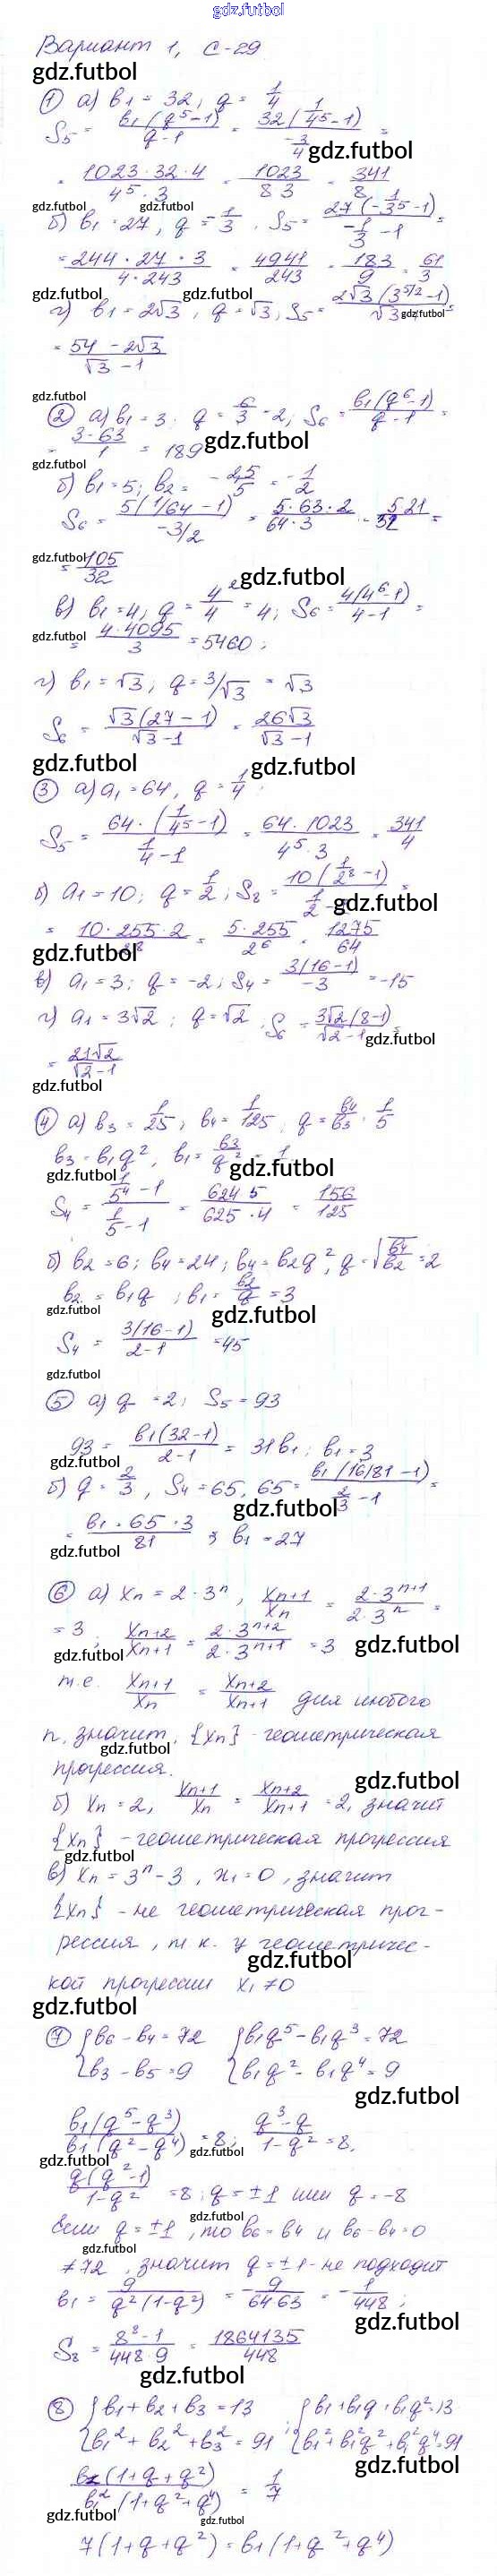 gdz.futbol
Вариант 1, С-29
gdz.futbol
① а) b₁ = 32, q = 1/4
S₅ = b₁(q⁵-1)/(q-1) = 32(1/4⁵-1)/(-3/4) =
gdz.futbol
= 1023·32·4/(4⁵·3) = 1023/(8 3) = 341/8
gdz.futbol gdz.futbol
б) b₁ = 27, q = -1/3. S₅ = 27(-1/3⁵-1)/(-1/3-1) =
= 244·27·3/(4·243) = 4941/243 = 183/9 = 61/3
gdz.futbol gdz.futbol
г) b₁ = 2√3, q = √3, S₅ = 2√3(3^(5/2)-1)/(√3-1) =
gdz.futbol
= (54-2√3)/(√3-1)
gdz.futbol
② а) b₁ = 3; q = 6/3 = 2; S₆ = b₁(q⁶-1)/(q-1) =
= 3·63/1 = 189
gdz.futbol
gdz.futbol
б) b₁ = 5; b₂ = -2,5/5 = -1/2
S₆ = 5(1/64-1)/(-3/2) = 5·63·2/(64·3) = 5 21/32 =
gdz.futbol
= 105/32
gdz.futbol
в) b₁ = 4; q = 4²/4 = 4; S₆ = 4(4⁶-1)/(4-1) =
gdz.futbol
= 4·4095/3 = 5460;
г) b₁ = √3; q = 3/√3 = √3
S₆ = √3(27-1)/(√3-1) = 26√3/(√3-1)
gdz.futbol gdz.futbol
③ а) a₁ = 64, q = 1/4.
S₅ = 64·(1/4⁵-1)/(1/4-1) = 64·1023/(4⁵·3) = 341/4
б) a₁ = 10; q = 1/2; S₈ = 10(1/2⁸-1)/(1/2-1) =
gdz.futbol
= 10·255·2/2⁸ = 5·255/2⁶ = 1275/64
gdz.futbol
в) a₁ = 3; q = -2; S₄ = 3(16-1)/(-3) = -15
г) a₁ = 3√2; q = √2, S₆ = 3√2(8-1)/(√2-1) =
gdz.futbol
= 21√2/(√2-1)
gdz.futbol
④ а) b₃ = 1/25; b₄ = 1/125; q = b₄/b₃ = 1/5
b₃ = b₁q², b₁ = b₃/q² = 1
gdz.futbol gdz.futbol
S₄ = (1/5⁴-1)/(1/5-1) = 624 5/(625·4) = 156/125
б) b₂ = 6; b₄ = 24; b₄ = b₂q², q = √(b₄/b₂) = 2
b₂ = b₁q; b₁ = b₂/q = 3
gdz.futbol gdz.futbol
S₄ = 3(16-1)/(2-1) = 45
gdz.futbol
⑤ а) q = 2; S₅ = 93
93 = b₁(32-1)/(2-1) = 31b₁; b₁ = 3
gdz.futbol
б) q = 2/3, S₄ = 65, 65 = b₁(16/81-1)/(2/3-1) =
gdz.futbol
= b₁·65·3/81 ⇒ b₁ = 27
gdz.futbol
⑥ а) xₙ = 2·3ⁿ, xₙ₊₁/xₙ = 2·3ⁿ⁺¹/(2·3ⁿ) =
= 3; xₙ₊₂/xₙ₊₁ = 2·3ⁿ⁺²/(2·3ⁿ⁺¹) = 3
gdz.futbol gdz.futbol
т.е. xₙ₊₁/xₙ = xₙ₊₂/xₙ₊₁ для любого
n, значит, {xₙ} - геометрическая
gdz.futbol
прогрессия.
gdz.futbol
б) xₙ = 2, xₙ₊₁/xₙ = xₙ₊₂/xₙ₊₁ = 2, значит
{xₙ} - геометрическая прогрессия
gdz.futbol
в) xₙ = 3ⁿ-3, x₁ = 0, значит
{xₙ} - не геометрическая прог-
рессия, т к. у геометричес-
gdz.futbol
кой прогрессии x₁ ≠ 0
gdz.futbol
⑦ {b₆-b₄ = 72 {b₁q⁵-b₁q³ = 72
{b₃-b₅ = 9 {b₁q²-b₁q⁴ = 9
gdz.futbol
b₁(q⁵-q³)/(b₁(q²-q⁴)) = 8; (q³-q)/(1-q²) = 8,
gdz.futbol gdz.futbol
q(q²-1)/(1-q²) = 8; q = ±1 или q = -8
gdz.futbol
Если q = ±1, то b₆ = b₄ и b₆-b₄ = 0
gdz.futbol
≠ 72, значит q = ±1 - не подходит
b₁ = 9/(q²(1-q²)) = -9/(64 63) = -1/448;
gdz.futbol
S₈ = (8⁸-1)/(448·9) = 1864135/448
gdz.futbol
⑧ {b₁+b₂+b₃ = 13 {b₁+b₁q+b₁q² = 13
{b₁²+b₂²+b₃² = 91; {b₁²+b₁²q²+b₁²q⁴ = 91
gdz.futbol
b₁(1+q+q²)/(b₁²(1+q²+q⁴)) = 1/7
gdz.futbol gdz.futbol
7(1+q+q²) = b₁(1+q²+q⁴)